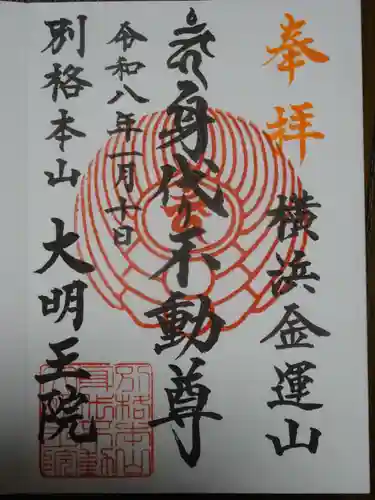 奉拝
横浜金運山
身代り不動尊
令和八年一月十日
別格本山
大明王院